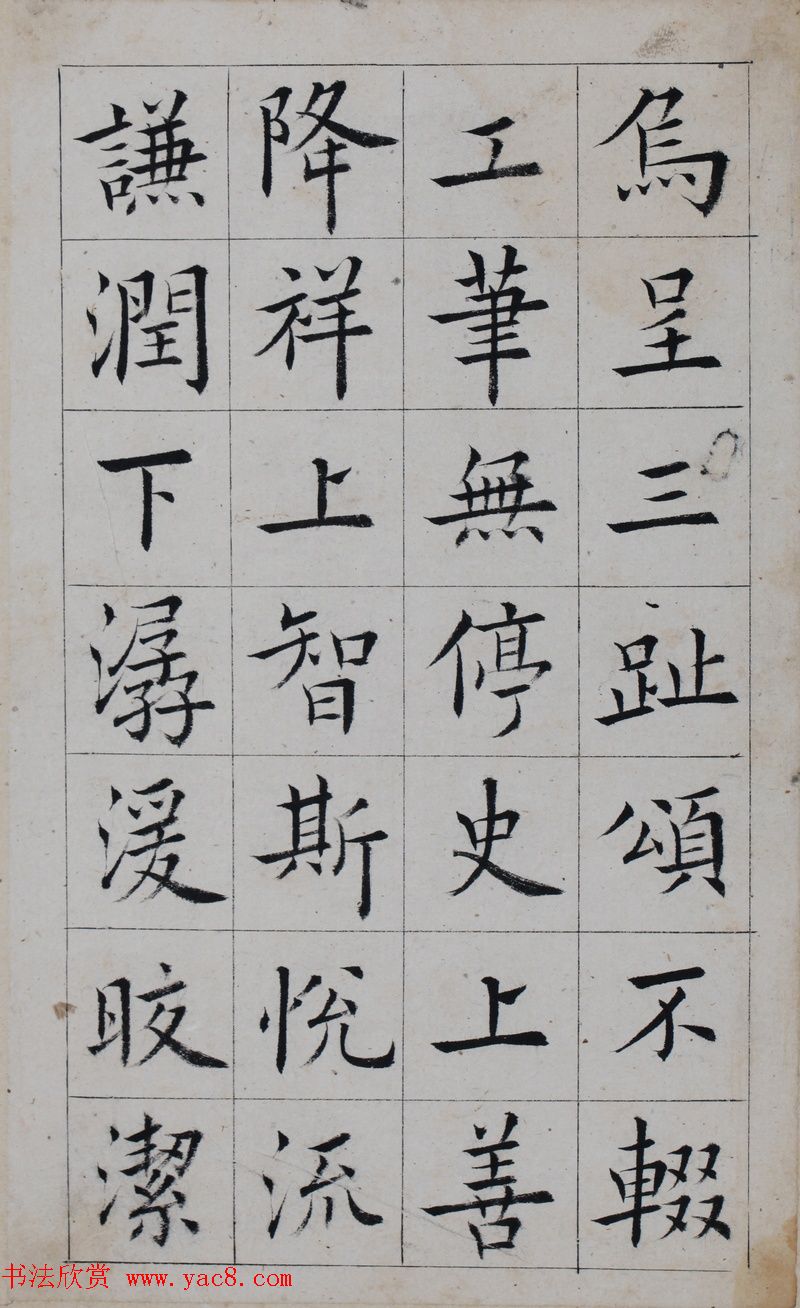 烏呈三趾頌不輟
工筆無停史上善
降祥上智斯悅流
謙潤下潺湲晈潔
书法欣赏 www.yac8.com